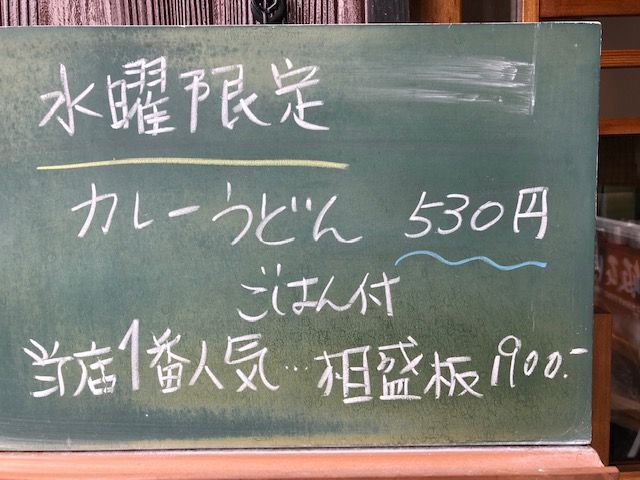 水曜限定
カレーうどん 530円
ごはん付
当店1番人気…相盛板1900.-